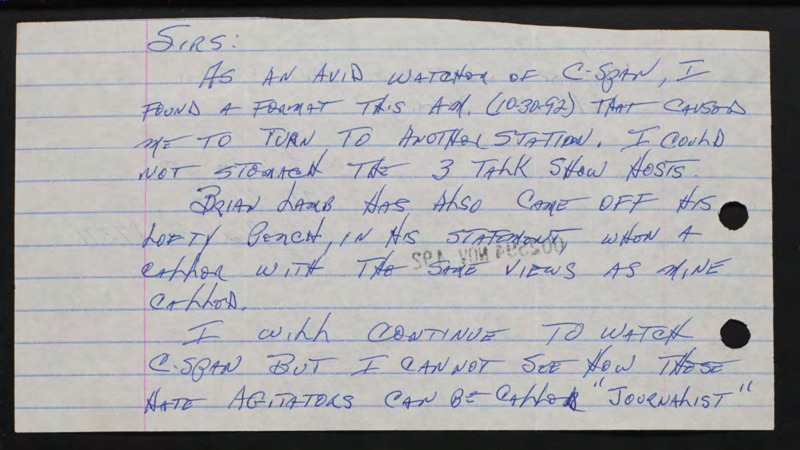 SIRS:
AS AN AVID WATCHER OF C-SPAN, I
FOUND A FORMAT THIS A.M. (10-30-92) THAT CAUSED
ME TO TURN TO ANOTHER STATION. I COULD
NOT STOMACH THE 3 TALK SHOW HOSTS.
BRIAN LAMB HAS ALSO CAME OFF HIS
LOFTY PERCH, IN HIS STATEMENT WHEN A
CALLER WITH THE SAME VIEWS AS MINE
CALLED.
I WILL CONTINUE TO WATCH
C-SPAN BUT I CANNOT SEE HOW THESE
HATE AGITATORS CAN BE CALLED "JOURNALIST"